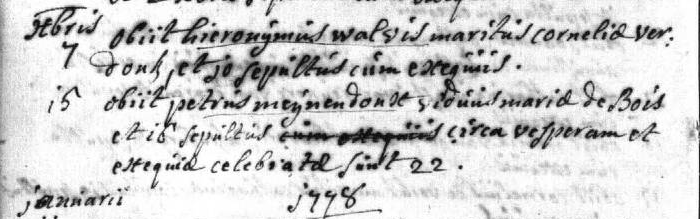 Xbris
7 obiit hieronymus walvis maritus corneliæ ver:
donk, et 10 sepultus cum exequiis.
15 obiit petrus meynendonx viduus mariæ de Bois
et 18 sepultus cum exequiis circa vesperam et
exequiæ celebratæ sunt 22.
januarii 1778